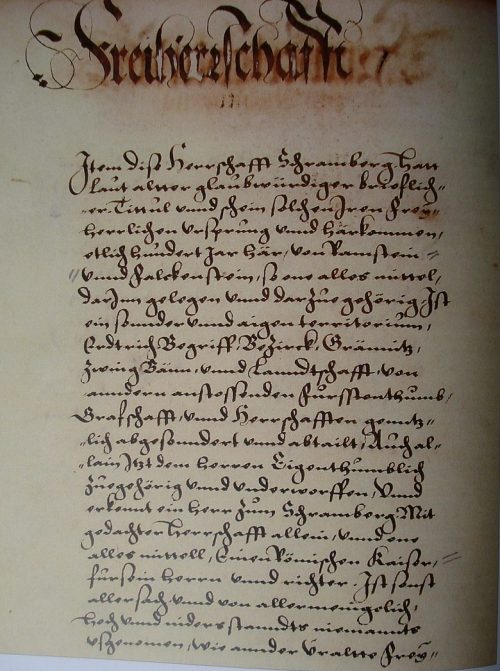 Freiherrschafft
Item dise Herrschafft Schramberg hatt
laut altter glaubwürdiger brieflich-
er Tittul vnnd schein solchen Iren Frey-
herrlichen vrsprung vnnd härkommen,
etlich hundert Jar här, von Ramstein
vnnd Falckenstein, so one alles mittel,
darInn gelegen vnnd darzue gehörig Ist
ein sonnder vnnd aigen territorium,
Erdtrich Begriff, Bezirck, Gränitz,
Zwing Bänn, vnnd Lanndtschafft, von
anndern anstossenden Fursstenthumb,
Grafschafft, vnnd Herrschafften genntz-
lich abgesondert vnnd abtailt, Auch al-
lain Jtzt dem herren Eigenthumblich
Zuegehörig vnnd vnderworffen, Vnnd
erkennt ein herr zum Schramberg Mit
gedachter herrschafft allein, vnnd one
alles mittell, Einen Römischen Kaiser,
für sein herrn vnnd richter. Ist sonst
aller sach vnnd von allermenigclich,
hoch vnnd niders stanndts niemannts
vsgenomen, wie annder Vraltte Frey-